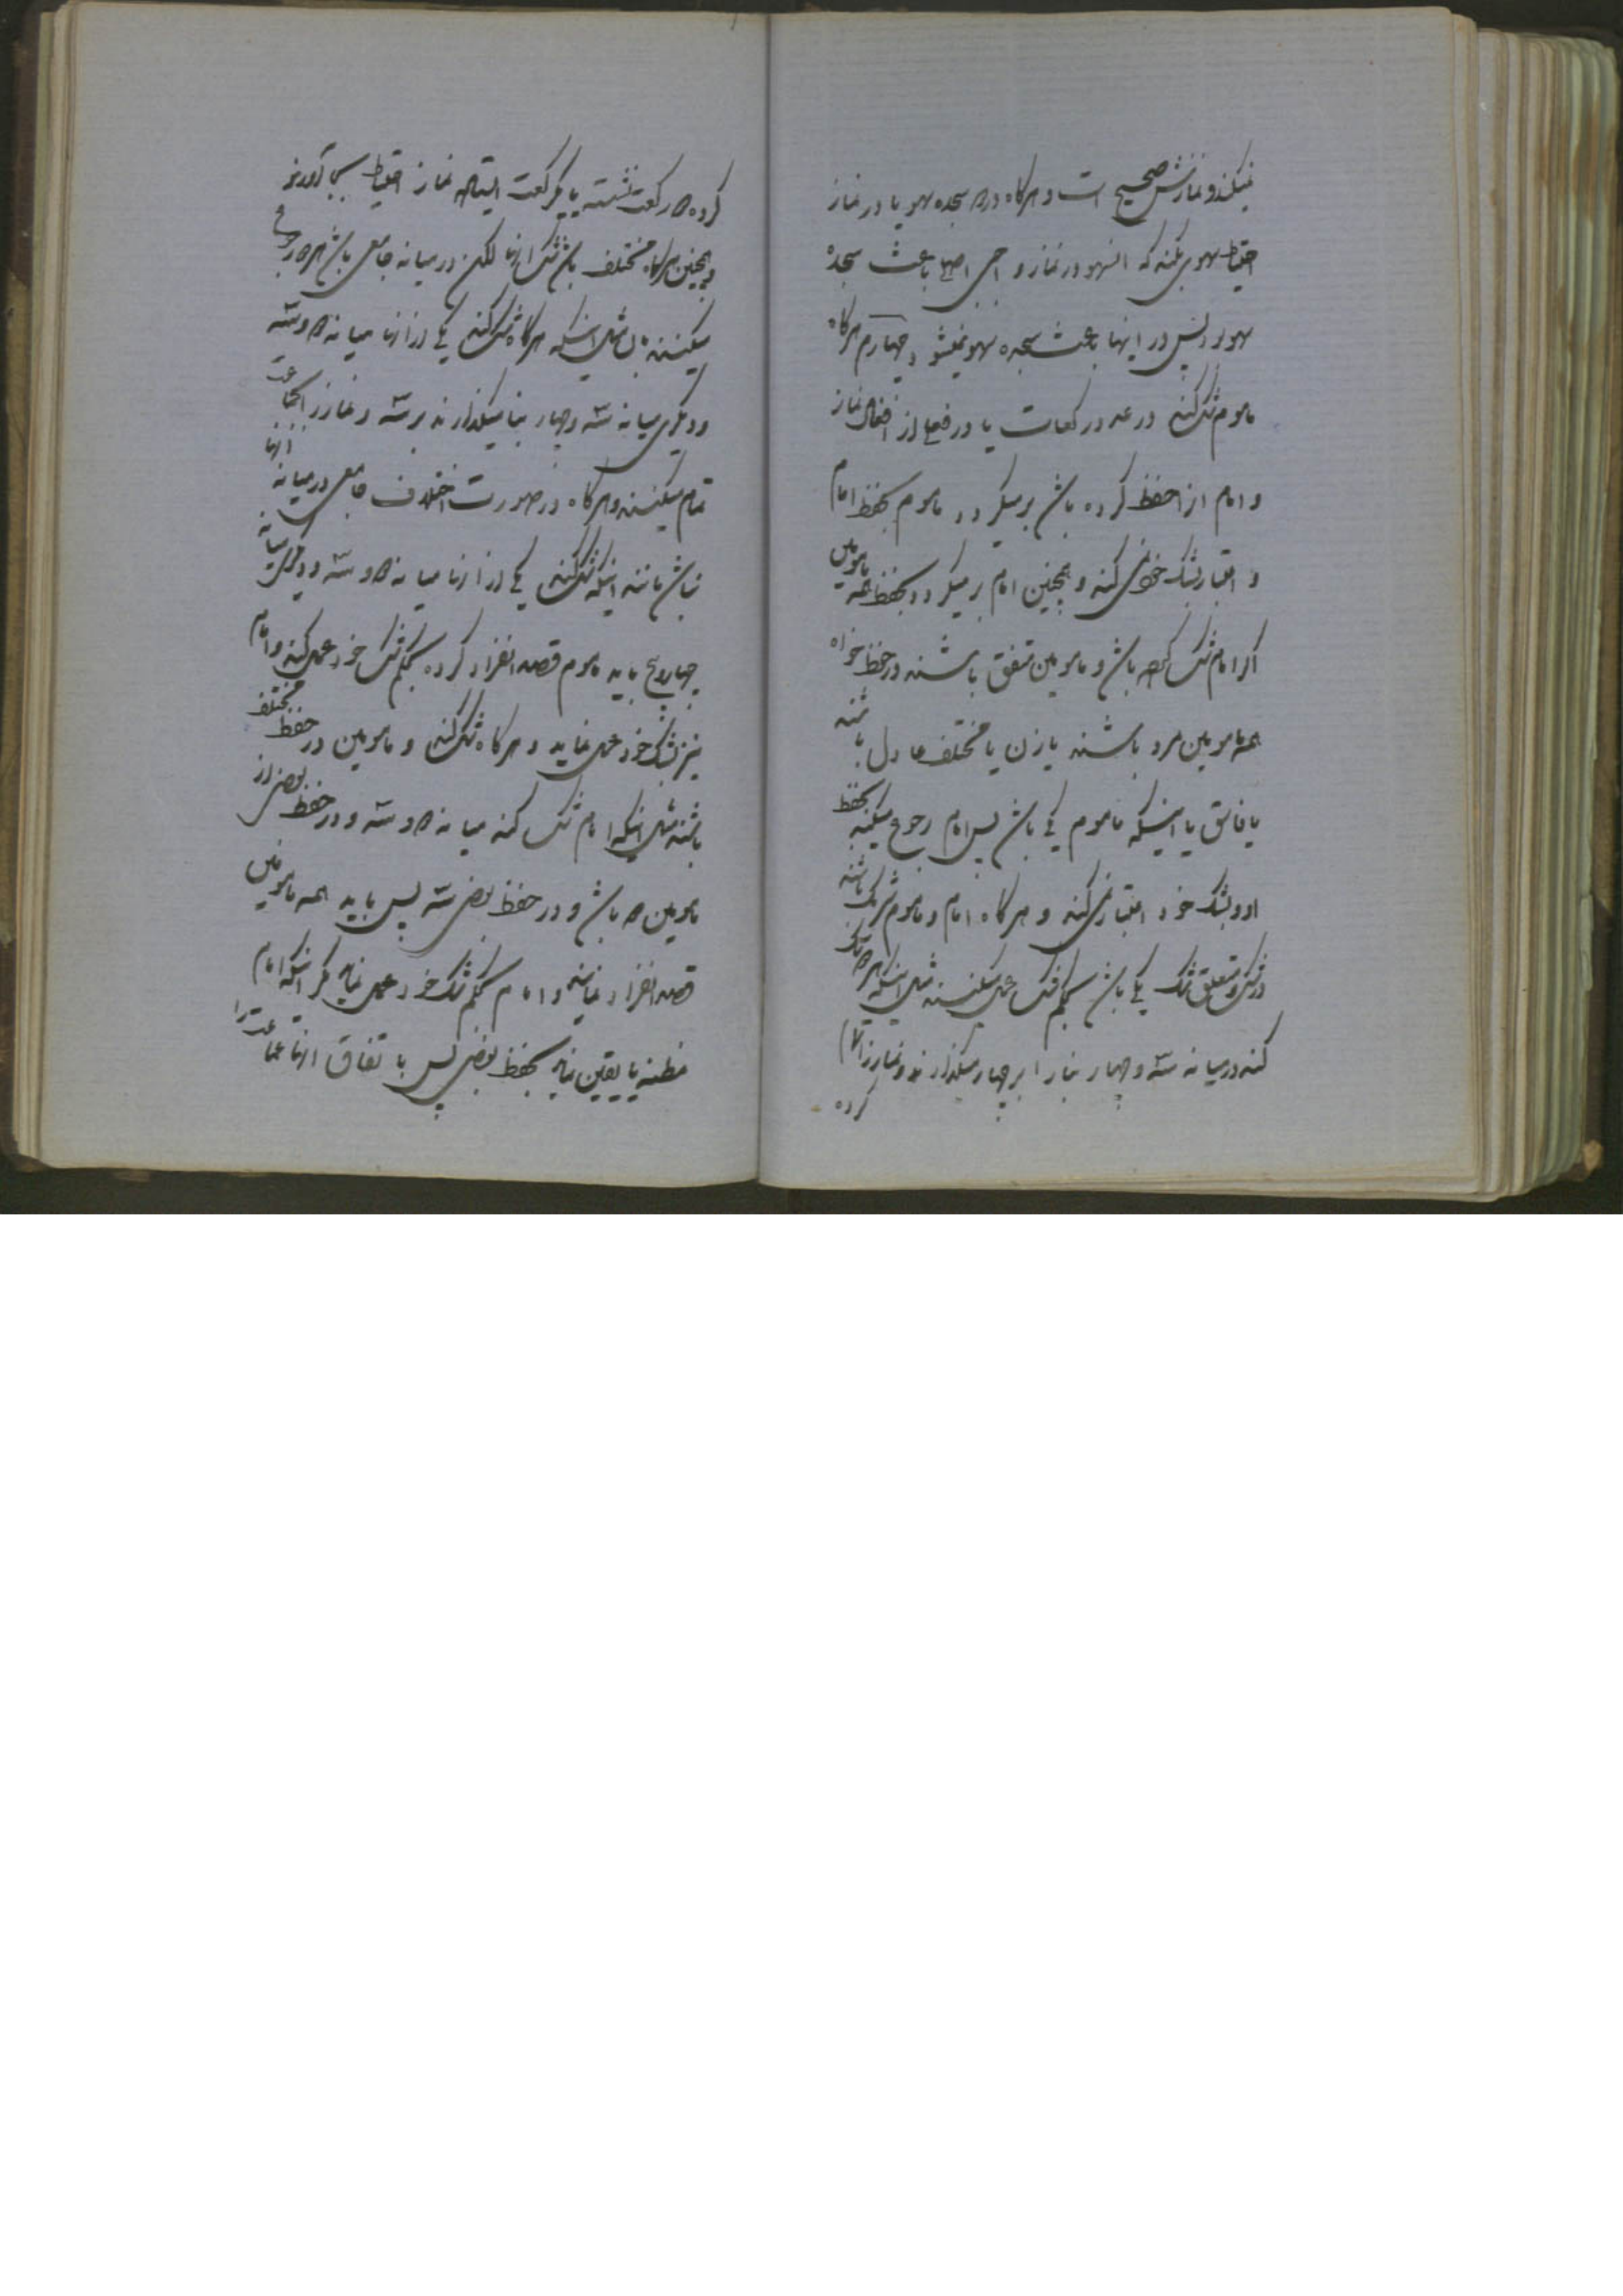 نمیکند و نمازش صحیح است و هرکاه در سجده سهو یا در نماز
احتیاط سهوی بکند که انسهو در نماز واجبی اصلی باعث سجده
سهو بود پس در اینها باعث سجده سهو نمیشود چهارم هرکاه
ماموم شک کند در عدد رکعات یا در فعلی از افعال نماز
و امام انرا حفظ کرده باشد برمیکردد ماموم بحفظ امام
و اعتبار بشک خود نمی کند و همچنین امام برمیکردد بحفظ همه مامومین
اکر امام شک کرده باشد و مامومین متفق باشند در حفظ خواه
همه مامومین مرد باشند یا زن یا مختلف عادل باشند
یا فاسق یا اینکه ماموم یکی باشد پس امام رجوع میکند بحفظ
او و بشک خود اعتبار نمی کند و هرکاه امام و ماموم شریک باشند
در شک و متعلق شک یکی باشد بحکم شک عمل میکنند مثل اینکه هر دو شک
کنند در میانه سه و چهار بنا را بر چهار میکذارند و نماز را تمام
کرده
کرده دو رکعت نشسته یا یکرکعت ایستاده نماز احتیاط بجا آورند
و همچنین هرکاه مختلف باشد شک انها لکن در میانه جامعی باشد هر دو رجوع
میکنند بان مثل اینکه هرکاه شک کند یکی از انها میانه دو و سه
و دیکری میانه سه و چهار بنا میکذارند بر سه و نماز را بجماعت
تمام میکنند و هرکاه در صورت اختلاف جامعی در میانه انها
نباشد مانند اینکه شک کند یکی از انها میانه دو و سه و دیکری میانه
چهار و پنج باید ماموم قصد انفراد کرده بحکم شک خود عمل کند و امام
نیز بشک خود عمل نماید و هرکاه شک کند و مامومین در حفظ مختلف
باشند مثل اینکه امام شک کند میانه دو و سه و در حفظ بعضی از
مامومین دو باشد و در حفظ بعضی سه پس باید همه مامومین
قصد انفراد نمایند و امام بحکم شک خود عمل نماید مکر اینکه امام
مظنه یا یقین نماید بحفظ بعضی پس با تفاق انها جماعت را